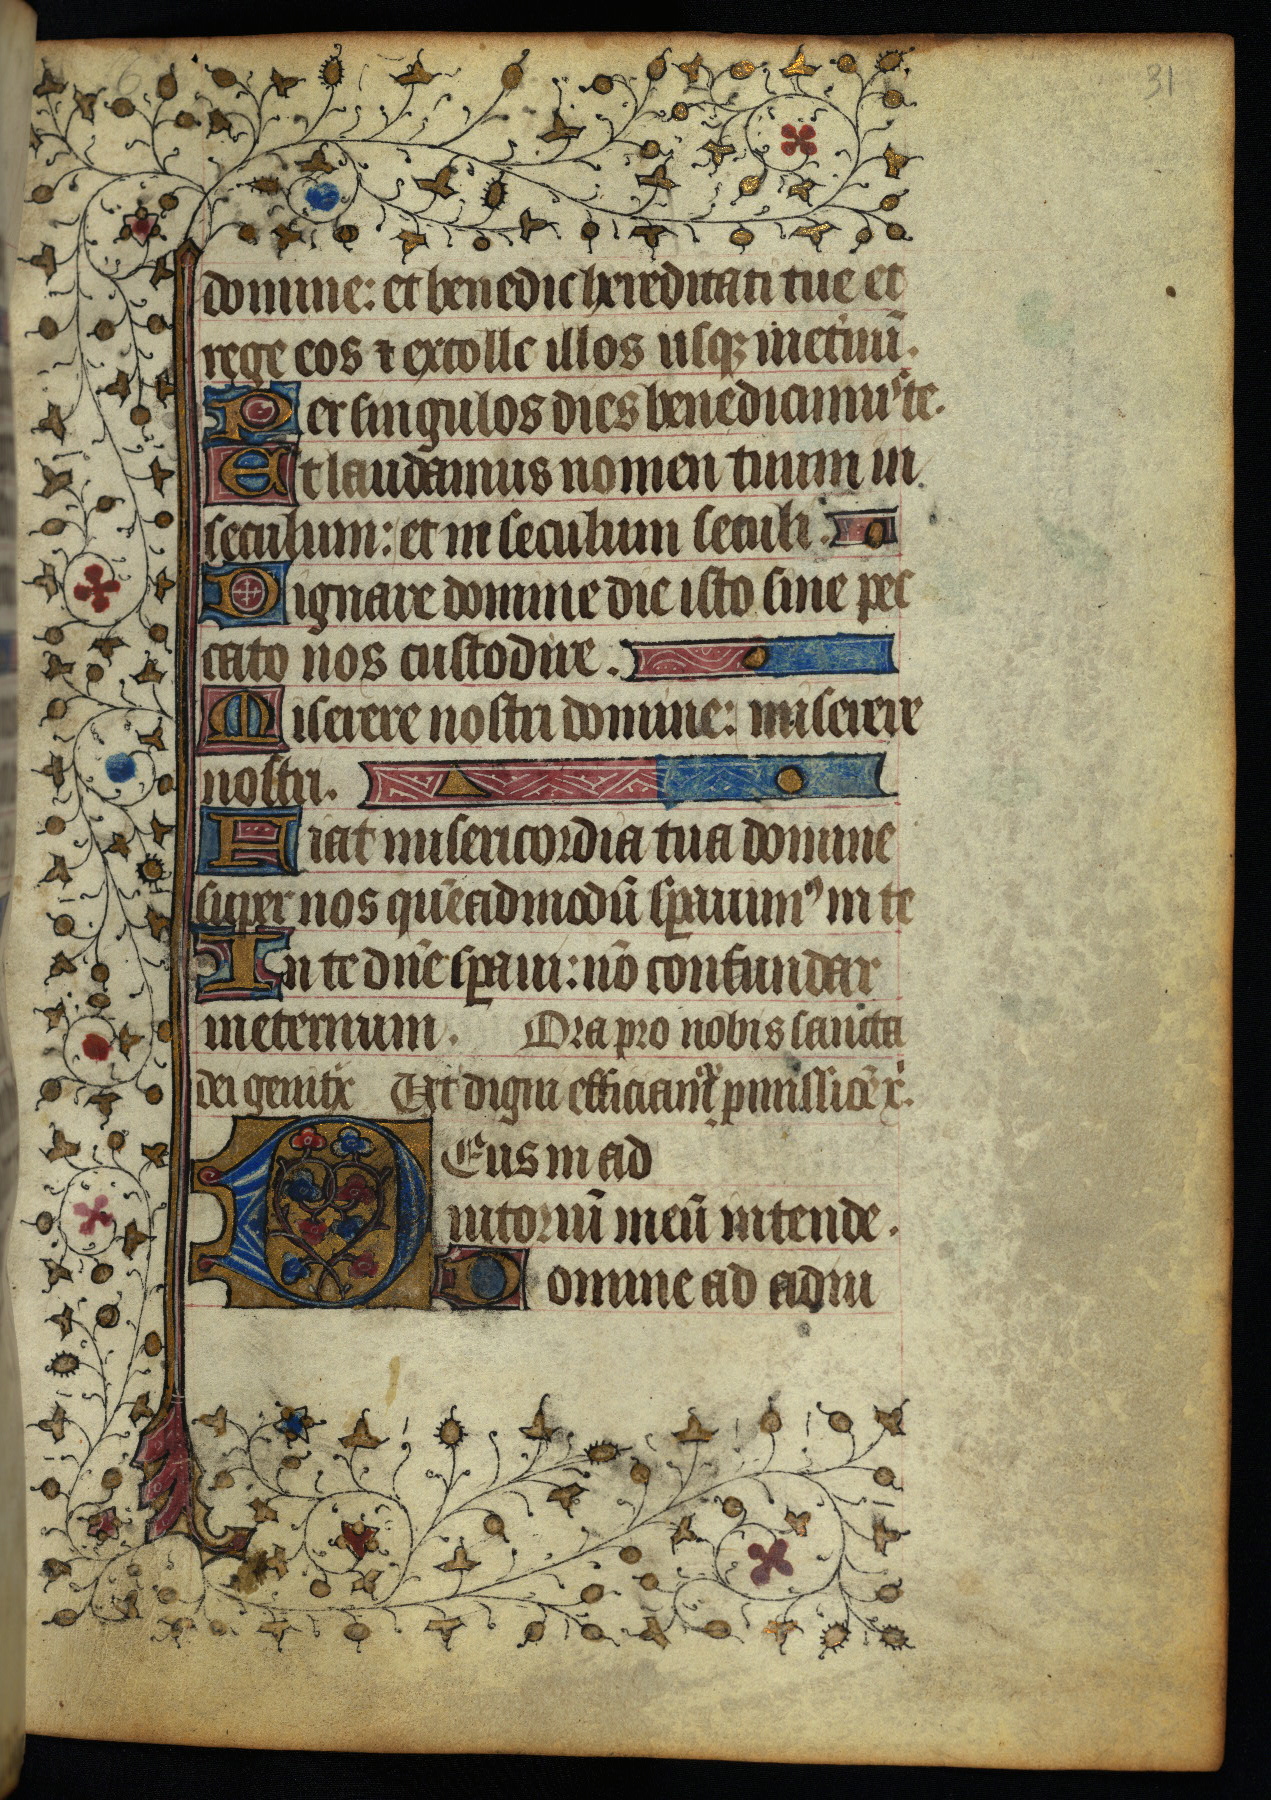 31
domine: et benedic hereditati tue et
rege eos ⁊ extolle illos usqꝫ inet̾nū.
Per singulos dies benedicimuˢ te.
Et laudamus nomen tuum in
seculum: et in seculum seculi.
Dignare domine die isto sine pec
cato nos custodire.
Miserere nostri domine: miserere
nostri.
Fiat misericordia tua domine
super nos quēadmodū sꝑauimꝰ in te
In te dn̄e sꝑaui: nō confundar
in eternum. Ora pro nobis sancta
dei genitͥx Ut digni efficiam̄
Deus in ad
iutoriū meū intende.
Domine ad adiu